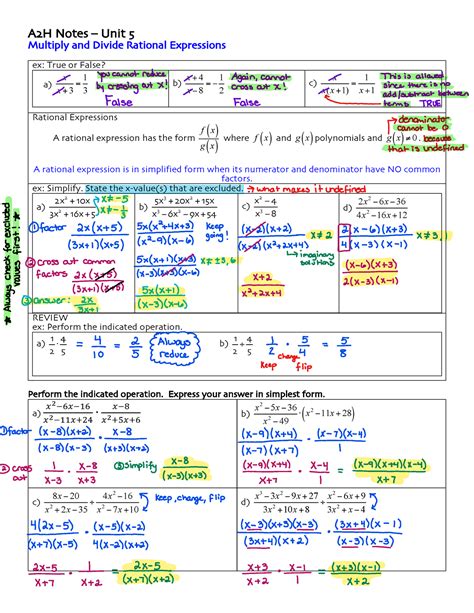 A2H Notes – Unit 5
Multiply and Divide Rational Expressions
ex: True or False?
a) x/(x+3) = 1/3 you cannot reduce by crossing out x! False
b) (x+4)/(x-8) = -1/2 Again, cannot cross out x! False
c) x/(x(x+1)) = 1/(x+1) This is allowed since there is no add/subtract between terms TRUE
Rational Expressions
A rational expression has the form f(x)/g(x) where f(x) and g(x) polynomials and g(x)≠0.
→ denominator cannot be 0 because that is undefined
A rational expression is in simplified form when its numerator and denominator have NO common factors.
ex: Simplify. State the x-value(s) that are excluded. → what makes it undefined
* Always check for excluded values first! *
a) (2x²+10x)/(3x²+16x+5) x≠-5 x≠-1/3
① factor 2x(x+5)/((3x+1)(x+5))
② cross out common factors 2x(x+5)/((3x+1)(x+5))
③ answer: 2x/(3x+1)
b) (5x³+20x²+15x)/(x³-6x²-9x+54)
5x(x²+4x+3)/((x²-9)(x-6)) Keep going!
5x(x+1)(x+3)/((x-3)(x+3)(x-6)) x≠±3,6
5x(x+1)/((x-3)(x-6))
c) (x²-4)/(x³-8)
(x-2)(x+2)/((x-2)(x²+2x+4)) x≠2
→ imaginary solutions
(x+2)/(x²+2x+4)
d) (2x²-6x-36)/(4x²-16x+12)
2(x-6)(x+3)/(4(x-3)(x-1)) x≠3,1
(x-6)(x+3)/(2(x-3)(x-1))
REVIEW
ex: Perform the indicated operation.
a) 1/2 · 4/5 = 4/10 = 2/5 Always reduce
b) 1/2 ÷ 4/5 1/2 · 5/4 = 5/8
Keep change flip
Perform the indicated operation. Express your answer in simplest form.
a) (x²-6x-16)/(x²-11x+24) · (x-8)/(x²+5x+6)
① factor (x-8)(x+2)/((x-8)(x-3)) · (x-8)/((x+3)(x+2))
② cross out 1/(x-3) · (x-8)/(x+3) ③ simplify (x-8)/((x-3)(x+3))
b) (x²-5x-36)/(x²-49) · (x²-11x+28)
(x-9)(x+4)/((x-7)(x+7)) · (x-7)(x-4)/1
(x-9)(x+4)/(x+7) · (x-4)/1 = (x-9)(x+4)(x-4)/(x+7)
c) (8x-20)/(x²+2x-35) ÷ (4x²-16)/(x²-7x+10) Keep, change, flip
4(2x-5)/((x+7)(x-5)) · (x-5)(x-2)/(4(x-2)(x+2))
(2x-5)/(x+7) · 1/(x+2) = (2x-5)/((x+7)(x+2))